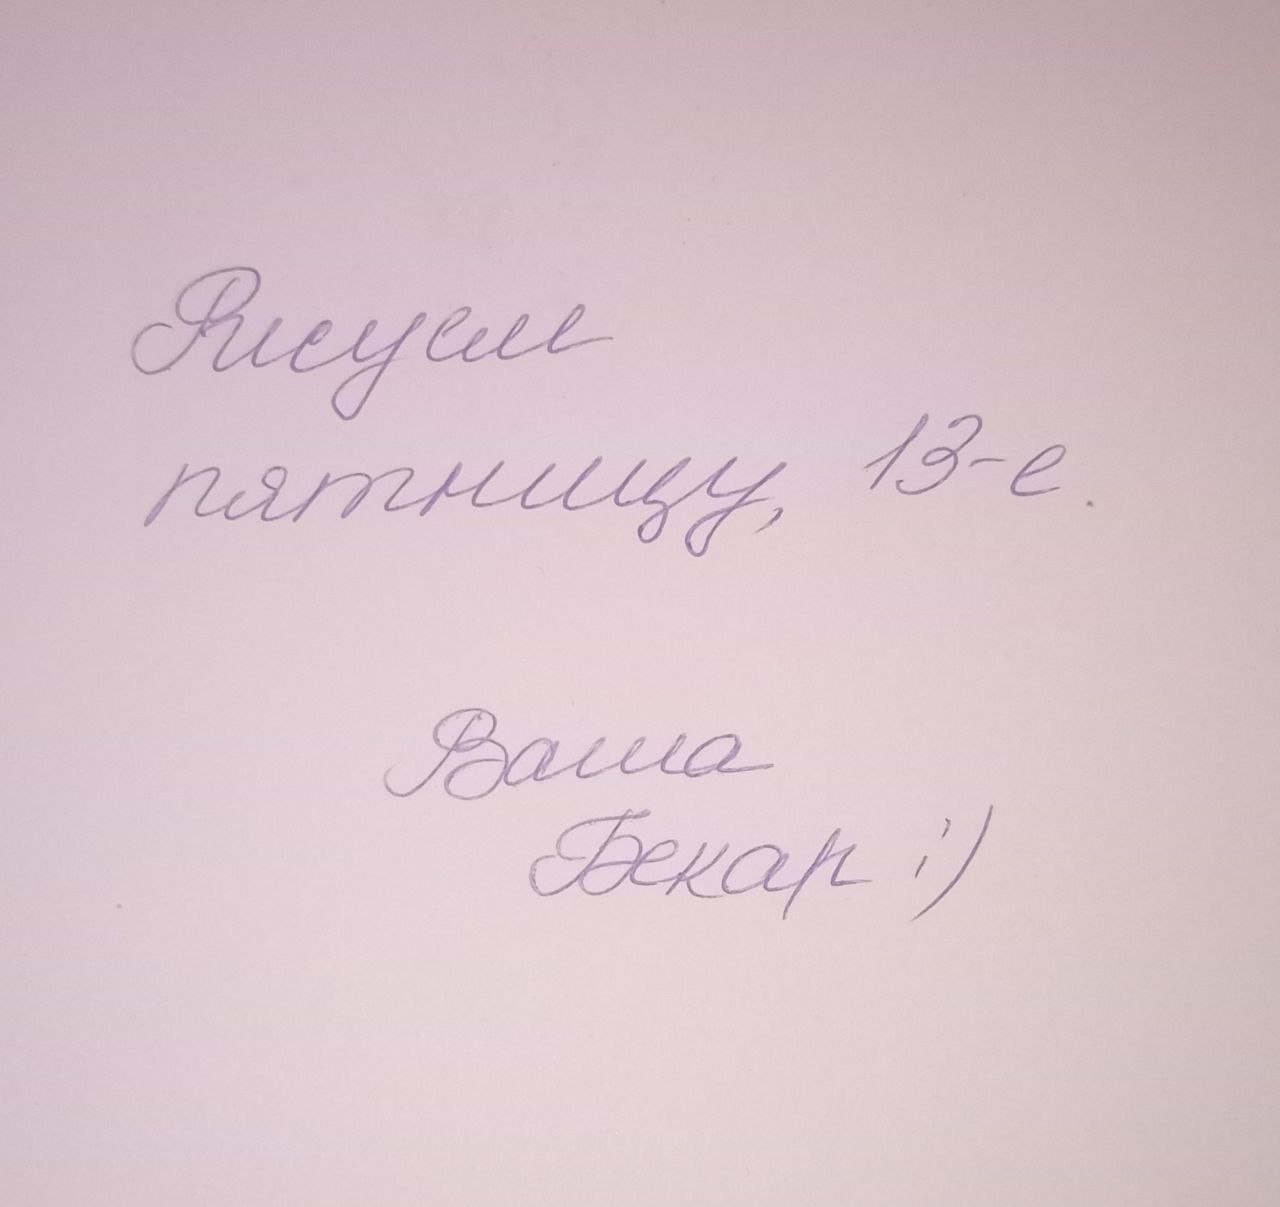 Рисуем
пятницу, 13-е.
Ваша
Бекар :)